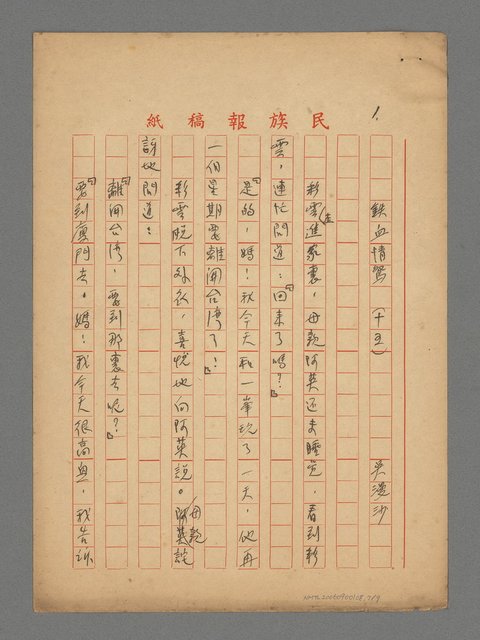 民族報稿紙
1.
鉄血情鴛（十五） 吳漫沙
彩雲走進家裏，母親阿英還未睡覺，看到彩
雲，連忙問道：「回來了嗎？」
「是的，媽！我今天和一峯玩了一天，他再
一個星期要離開台湾了！」
彩雲脫下外衣，喜悅地向阿英說。母親阿英詫
訝地問道：
「離開台湾，要到那裏去呢？」
「要到廈門去，媽！我今天很高興，我告訴
NMTL20060900108_7/9